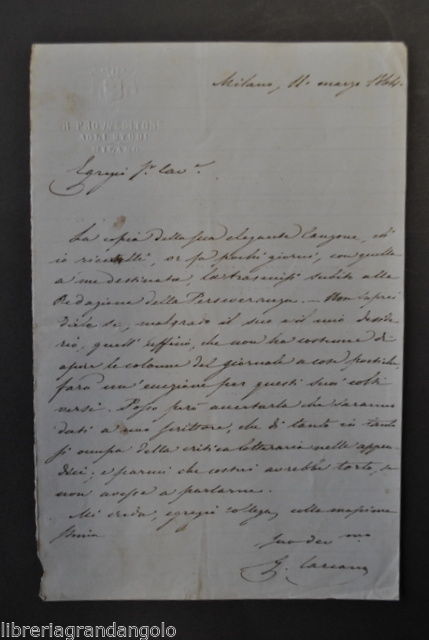 Milano, 11. marzo 1864.
R. PROVVEDITORE
AGLI STUDI
MILANO
Egregio Sr. Cavre.
La copia della sua elegante Canzone, ch'
io ricevetti, or fa pochi giorni, con quella
a me destinata, la trasmisi subito alla
Redazione della Perseveranza. — Non saprei
dirle se, malgrado il suo e il mio deside
rio, quell'uffizio, che non ha costume di
aprire le colonne del giornale a cose poetiche,
farà un'eccezione per questi suoi colti
versi. Posso però accertarla che saranno
dati a uno scrittore, che di tanto in tanto
si occupa della critica letteraria nelle appen
dici; e parmi che costui avrebbe torto, se
non avesse a parlarne.
Mi creda, egregio collega, colla massima
stima
Suo dev.mo
G. Carcano
libreriagrandangolo